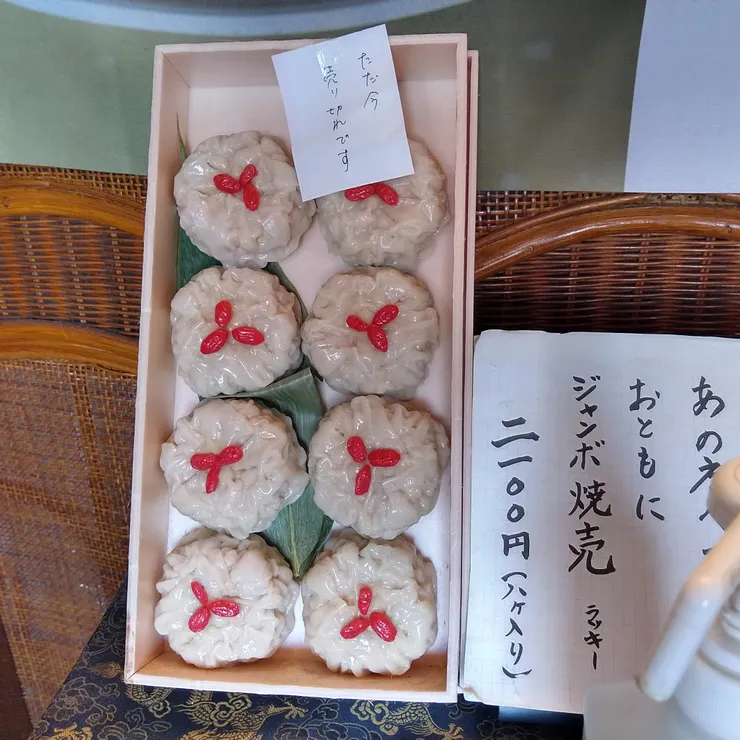 ただ今
売り切れです
あの
おともに
ジャンボ焼売
ラッキー
二一〇〇円(八ヶ入り)